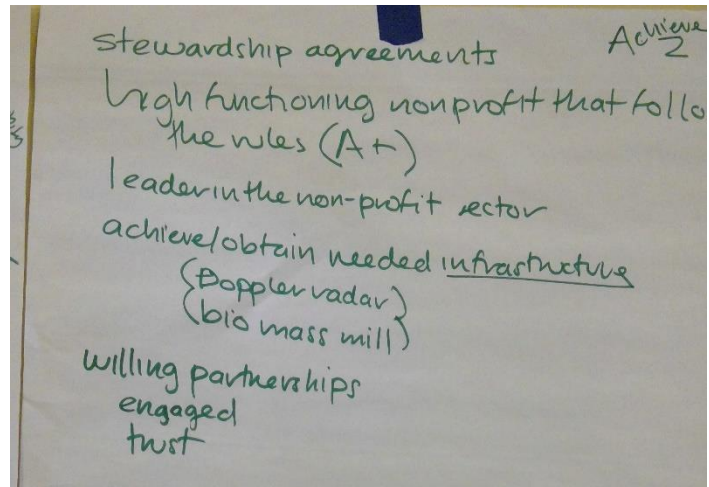 Achieve
2
stewardship agreements
high functioning nonprofit that follo
the rules (A+)
leader in the non-profit sector
achieve/obtain needed infrastructure
(Doppler radar)
(bio mass mill)
willing partnerships
engaged
trust